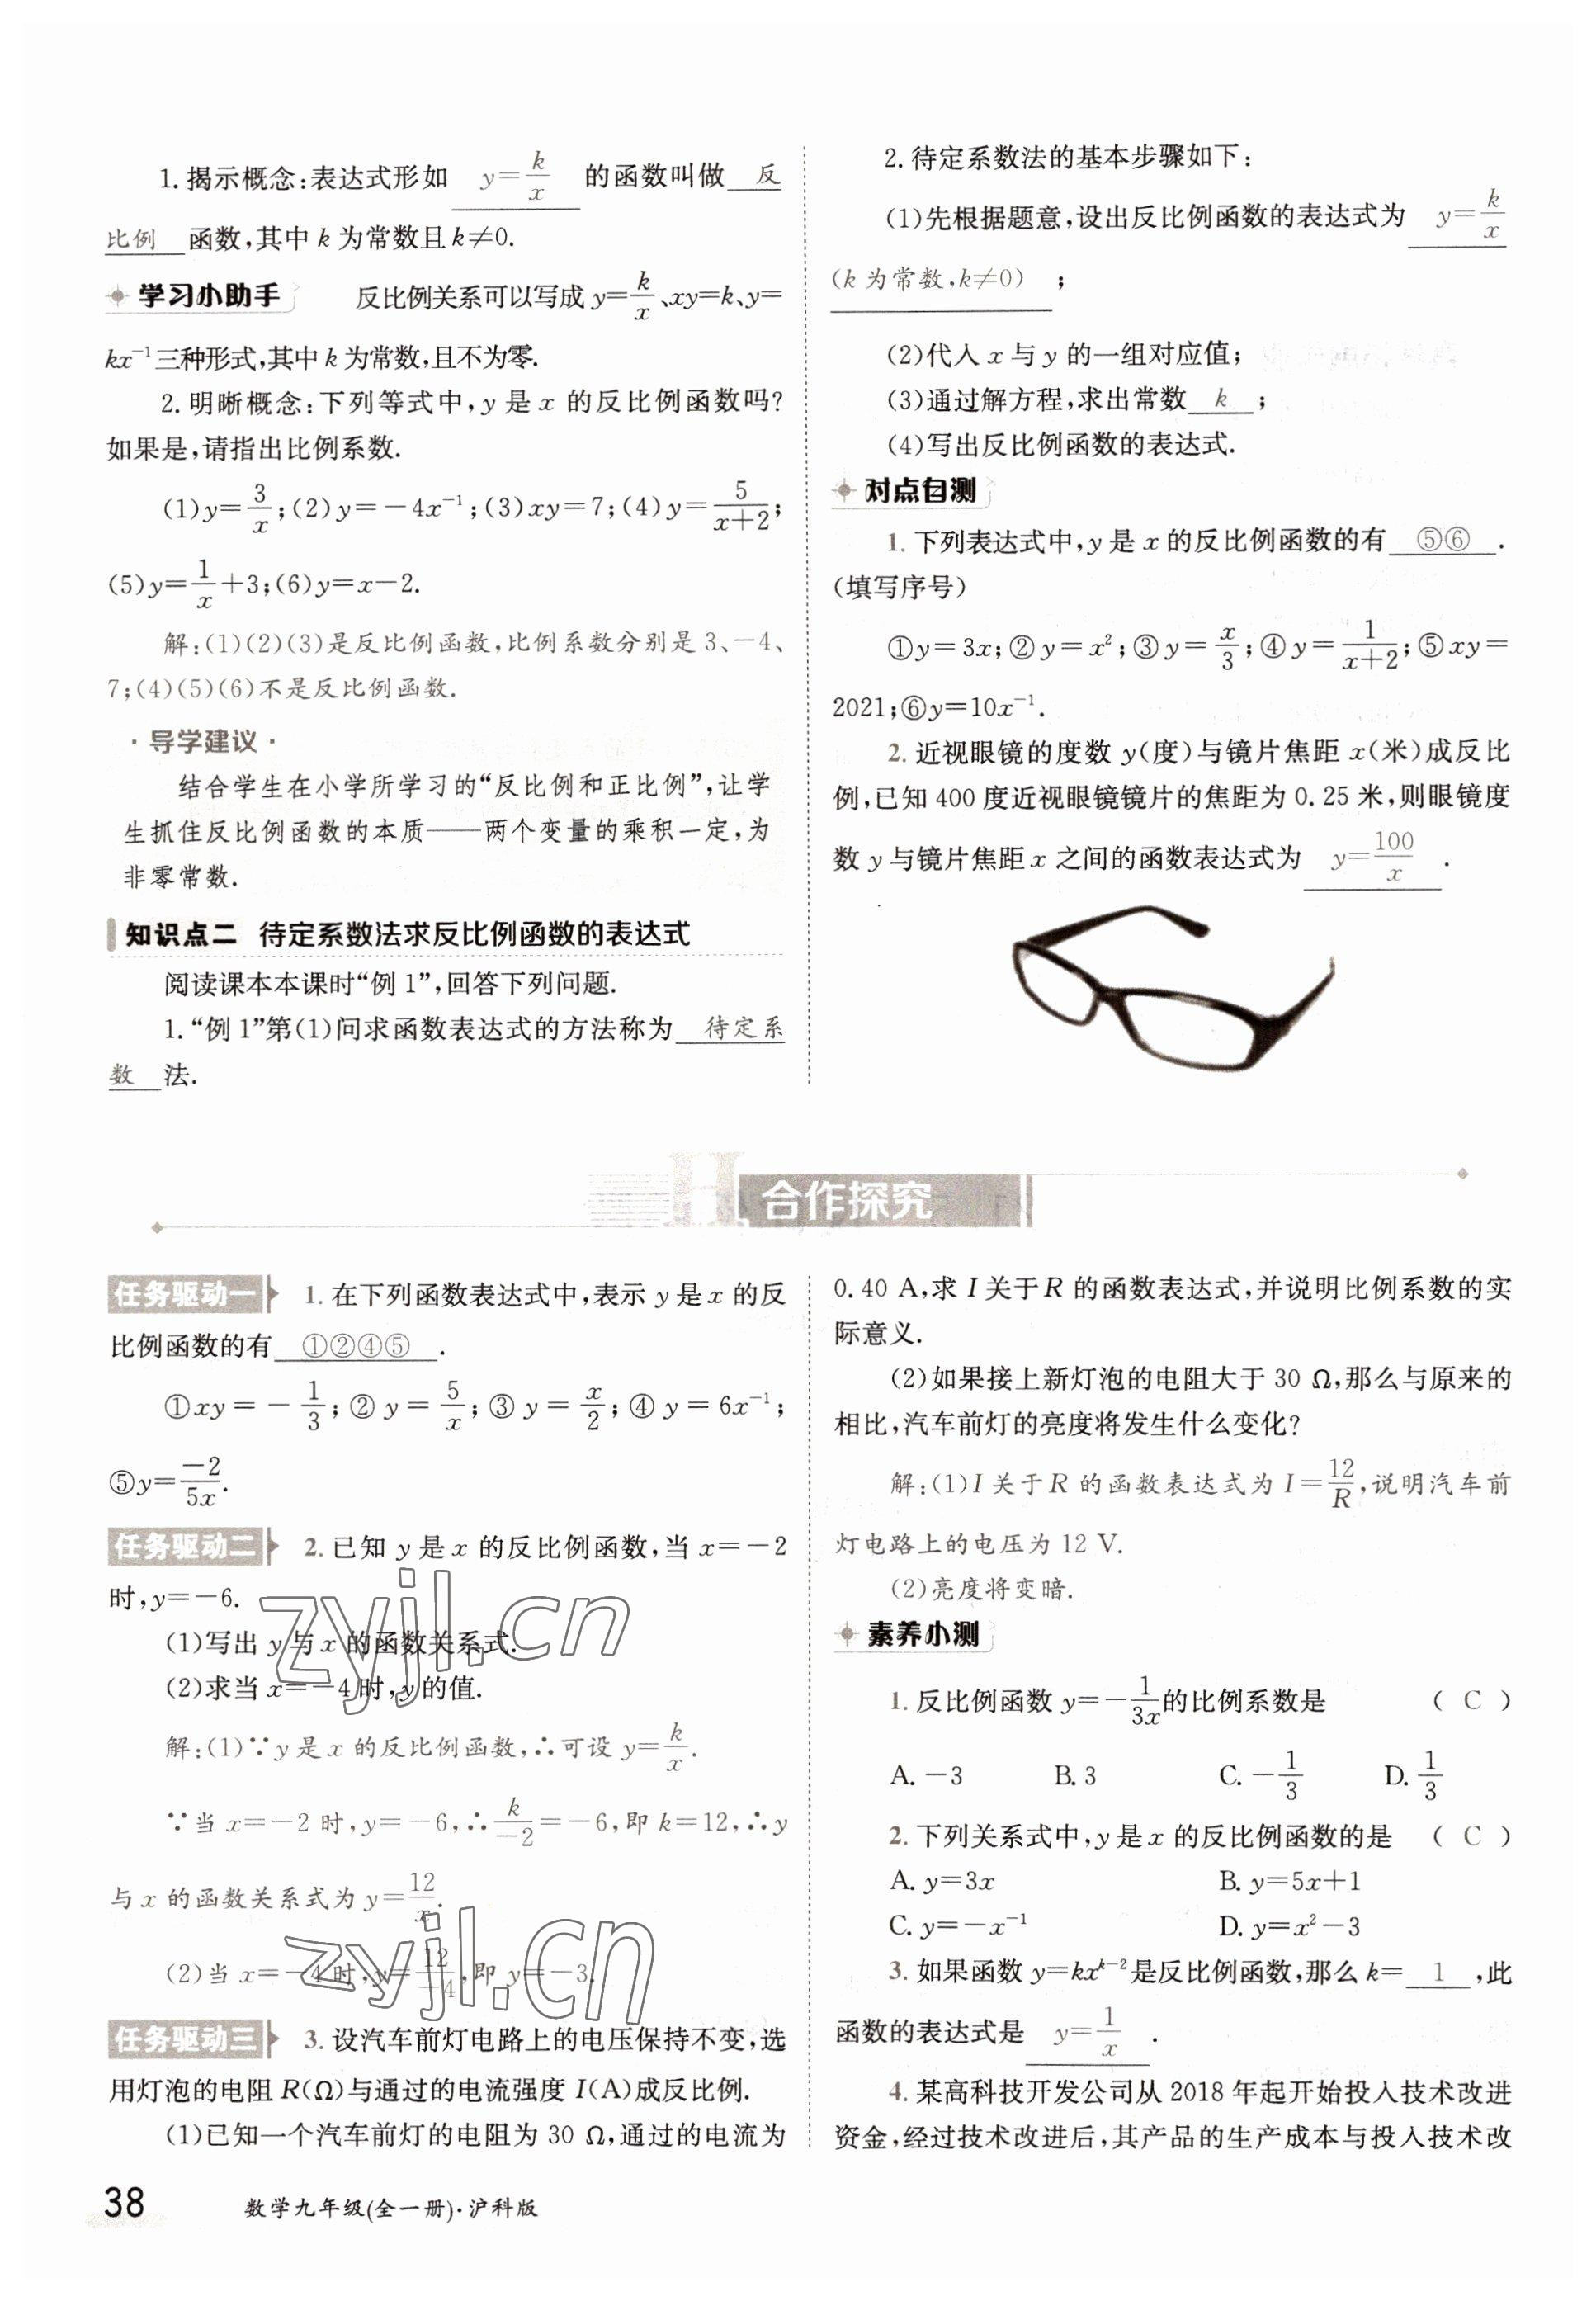 1.揭示概念:表达式形如 y=k/x 的函数叫做 反
比例 函数,其中 k 为常数且 k≠0.
学习小助手 反比例关系可以写成 y=k/x、xy=k、y=
kx⁻¹三种形式,其中 k 为常数,且不为零.
2.明晰概念:下列等式中,y 是 x 的反比例函数吗?
如果是,请指出比例系数.
(1)y=3/x;(2)y=-4x⁻¹;(3)xy=7;(4)y=5/(x+2);
(5)y=1/x+3;(6)y=x-2.
解:(1)(2)(3)是反比例函数,比例系数分别是 3、-4、
7;(4)(5)(6)不是反比例函数.
·导学建议·
结合学生在小学所学习的“反比例和正比例”,让学
生抓住反比例函数的本质——两个变量的乘积一定,为
非零常数.
知识点二 待定系数法求反比例函数的表达式
阅读课本本课时“例 1”,回答下列问题.
1.“例 1”第(1)问求函数表达式的方法称为 待定系
数 法.
2.待定系数法的基本步骤如下:
(1)先根据题意,设出反比例函数的表达式为 y=k/x
(k 为常数,k≠0) ;
(2)代入 x 与 y 的一组对应值;
(3)通过解方程,求出常数 k ;
(4)写出反比例函数的表达式.
对点自测
1.下列表达式中,y 是 x 的反比例函数的有 ⑤⑥ .
(填写序号)
①y=3x;②y=x²;③y=x/3;④y=1/(x+2);⑤xy=
2021;⑥y=10x⁻¹.
2.近视眼镜的度数 y(度)与镜片焦距 x(米)成反比
例,已知 400 度近视眼镜镜片的焦距为 0.25 米,则眼镜度
数 y 与镜片焦距 x 之间的函数表达式为 y=100/x .
H 合作探究
任务驱动一 1.在下列函数表达式中,表示 y 是 x 的反
比例函数的有 ①②④⑤ .
①xy=-1/3;②y=5/x;③y=x/2;④y=6x⁻¹;
⑤y=-2/5x.
任务驱动二 2.已知 y 是 x 的反比例函数,当 x=-2
时,y=-6.
(1)写出 y 与 x 的函数关系式.
(2)求当 x=-4 时,y 的值.
解:(1)∵y 是 x 的反比例函数,∴可设 y=k/x.
∵当 x=-2 时,y=-6,∴k/-2=-6,即 k=12,∴y
与 x 的函数关系式为 y=12/x.
(2)当 x=-4 时,y=12/-4,即 y=-3.
任务驱动三 3.设汽车前灯电路上的电压保持不变,选
用灯泡的电阻 R(Ω)与通过的电流强度 I(A)成反比例.
(1)已知一个汽车前灯的电阻为 30 Ω,通过的电流为
0.40 A,求 I 关于 R 的函数表达式,并说明比例系数的实
际意义.
(2)如果接上新灯泡的电阻大于 30 Ω,那么与原来的
相比,汽车前灯的亮度将发生什么变化?
解:(1)I 关于 R 的函数表达式为 I=12/R,说明汽车前
灯电路上的电压为 12 V.
(2)亮度将变暗.
素养小测
1.反比例函数 y=-1/3x 的比例系数是 ( C )
A.-3 B.3 C.-1/3 D.1/3
2.下列关系式中,y 是 x 的反比例函数的是 ( C )
A.y=3x B.y=5x+1
C.y=-x⁻¹ D.y=x²-3
3.如果函数 y=kxᵏ⁻²是反比例函数,那么 k= 1 ,此
函数的表达式是 y=1/x .
4.某高科技开发公司从 2018 年起开始投入技术改进
资金,经过技术改进后,其产品的生产成本与投入技术改
38 数学九年级(全一册)·沪科版
zyjl.cn
zyjl.cn